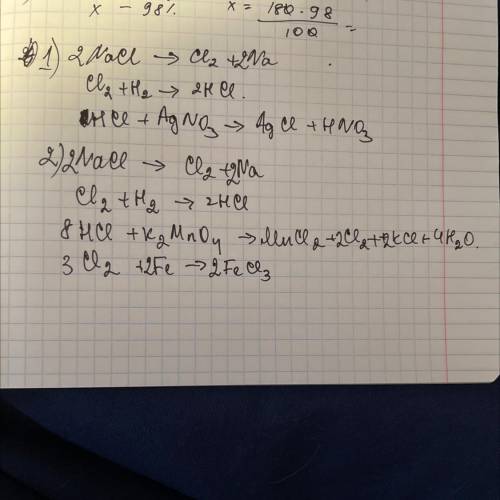 x – 98% x = 180 · 98 / 100 =
1) 2NaCl → Cl2 + 2Na .
Cl2 + H2 → 2HCl.
HCl + AgNO3 → AgCl + HNO3
2) 2NaCl → Cl2 + 2Na
Cl2 + H2 → 2HCl
8HCl + K2MnO4 → MnCl2 + 2Cl2 + 2KCl + 4H2O.
3Cl2 + 2Fe → 2FeCl3